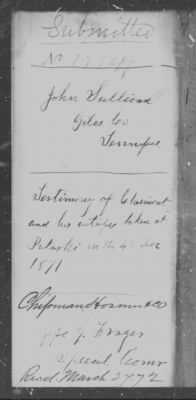 Submitted
No 17
John Sullivan
Giles Co
Tennessee
Testimony of Claimant
and his taken at
Pulaski on the 4th Dec
1871
Chipman Hosmer & Co
Special Comr
Recd. March 27 72